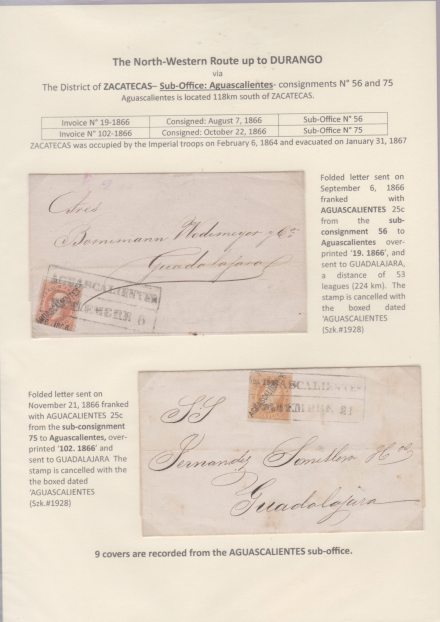 The North-Western Route up to DURANGO
via
The District of ZACATECAS– Sub-Office: Aguascalientes- consignments N° 56 and 75
Aguascalientes is located 118km south of ZACATECAS.
Invoice N° 19-1866 Consigned: August 7, 1866 Sub-Office N° 56
Invoice N° 102-1866 Consigned: October 22, 1866 Sub-Office N° 75
ZACATECAS was occupied by the Imperial troops on February 6, 1864 and evacuated on January 31, 1867
Folded letter sent on
September 6, 1866
franked with
AGUASCALIENTES 25c
from the sub-
consignment 56 to
Aguascalientes over-
printed '19. 1866', and
sent to GUADALAJARA,
a distance of 53
leagues (224 km). The
stamp is cancelled with
the boxed dated
'AGUASCALIENTES
(Szk.#1928)
Sres
Bornemann Wedemeyer y Ca
Guadalajara
AGUASCALIENTES
TIEMBRE 6
Folded letter sent on
November 21, 1866 franked
with AGUACALIENTES 25c
from the sub-consignment
75 to Aguascalientes, over-
printed '102. 1866' and
sent to GUADALAJARA The
stamp is cancelled with the
the boxed dated
'AGUASCALIENTES
(Szk.#1928)
AGUASCALIENTES
VIEMBRE 21
SS
Fernandez Somellera Hos
Guadalajara
9 covers are recorded from the AGUASCALIENTES sub-office.